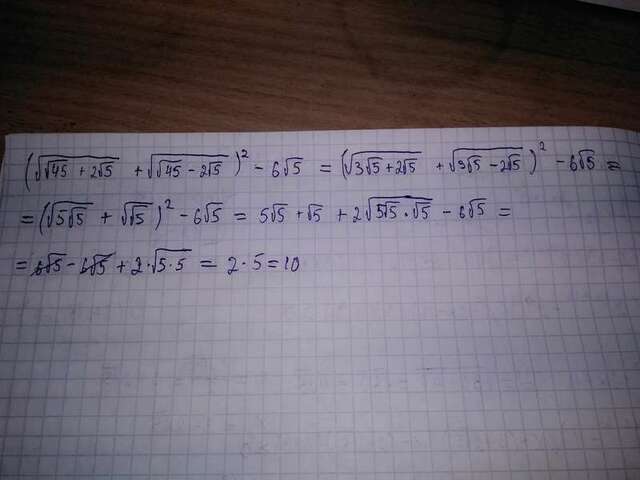 (√(√45 + 2√5) + √(√45 − 2√5))² − 6√5 = (√(3√5 + 2√5) + √(3√5 − 2√5))² − 6√5 =
= (√(5√5) + √(√5))² − 6√5 = 5√5 + √5 + 2√(5√5 · √5) − 6√5 =
= 6√5 − 6√5 + 2 · √(5 · 5) = 2 · 5 = 10